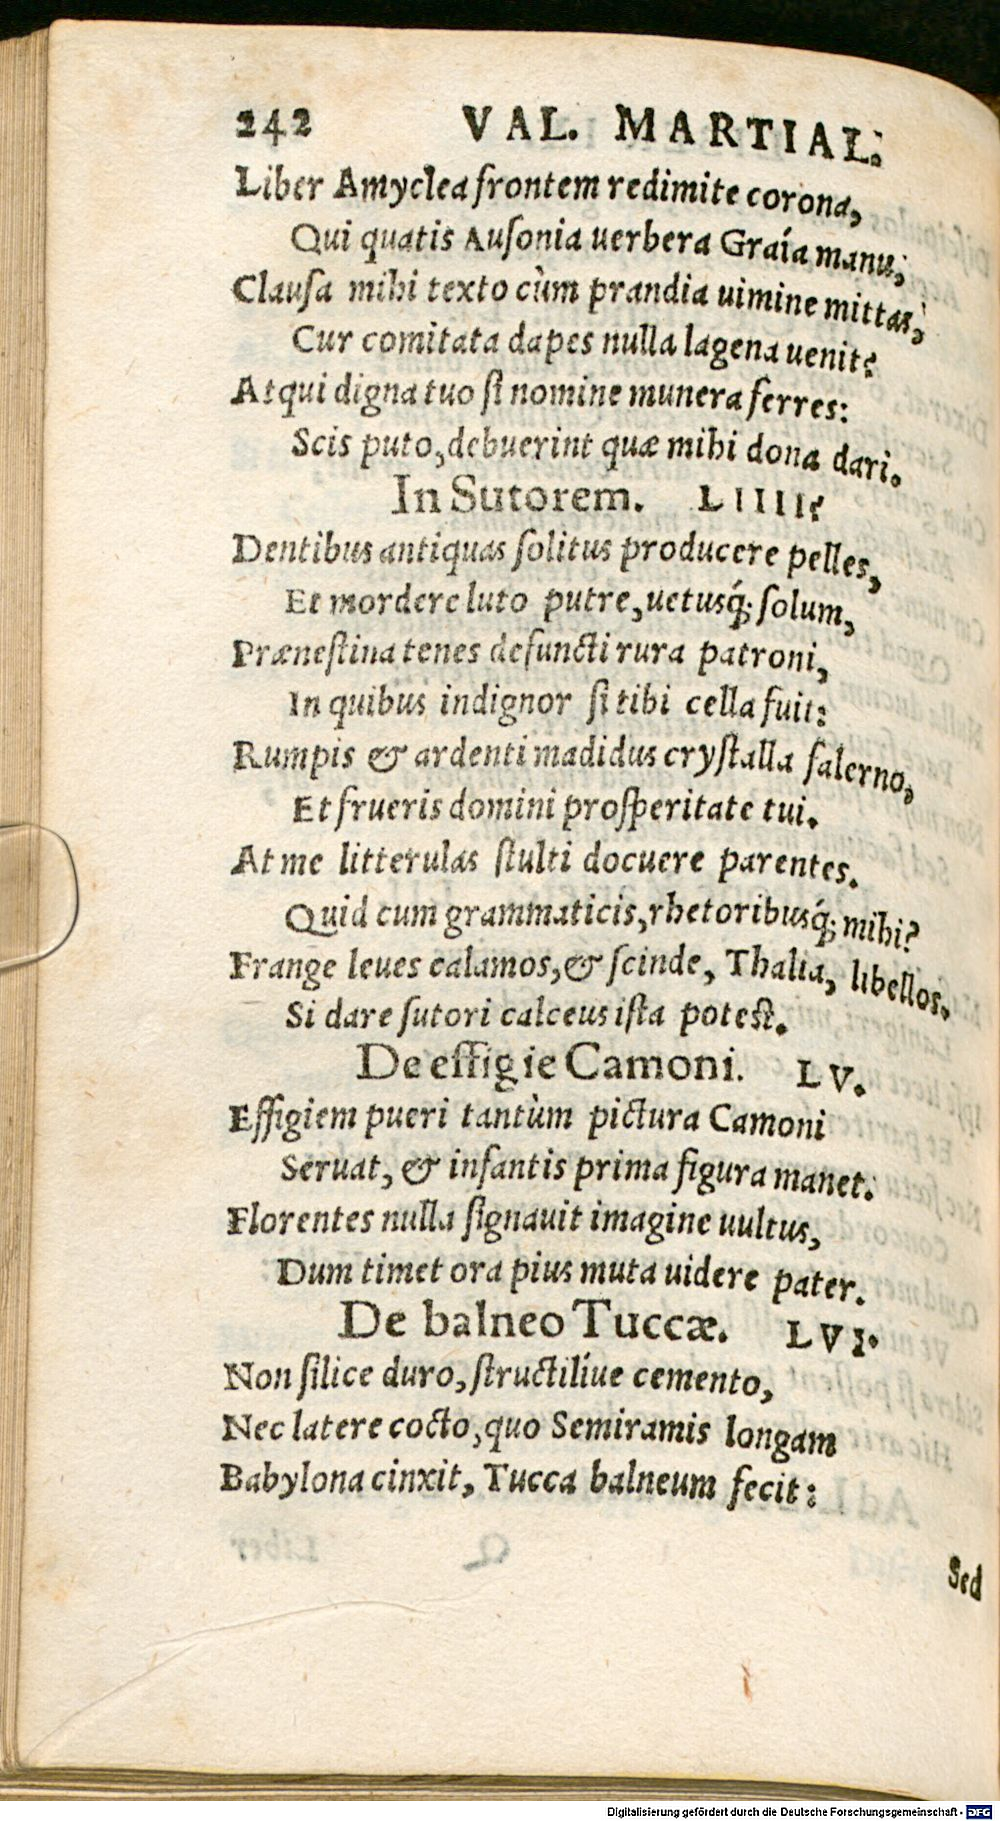 242 VAL. MARTIAL.
Liber Amyclea frontem redimite corona,
Qui quatis Ausonia uerbera Graía manu,
Clauſa mihi texto cùm prandia uimine mittas,
Cur comitata dapes nulla lagena uenit?
Atqui digna tuo ſi nomine munera ferres:
Scis puto, debuerint quæ mihi dona dari.
In Sutorem. LIIII.
Dentibus antiquas ſolitus producere pelles,
Et mordere luto putre, uetusq́; ſolum,
Præneſtina tenes defuncti rura patroni,
In quibus indignor ſi tibi cella fuit:
Rumpis & ardenti madidus cryſtalla falerno,
Et frueris domini proſperitate tui.
At me litterulas ſtulti docuere parentes.
Quid cum grammaticis, rhetoribusq́; mihi?
Frange leues calamos, & ſcinde, Thalia, libellos.
Si dare ſutori calceus iſta poteſt.
De effigie Camoni. LV.
Effigiem pueri tantùm pictura Camoni
Seruat, & infantis prima figura manet.
Florentes nulla ſignauit imagine uultus,
Dum timet ora pius muta uidere pater.
De balneo Tuccæ. LVI.
Non ſilice duro, ſtructilíue cemento,
Nec latere cocto, quo Semiramis longam
Babylona cinxit, Tucca balneum fecit:
Sed
Digitalisierung gefördert durch die Deutsche Forschungsgemeinschaft - DFG